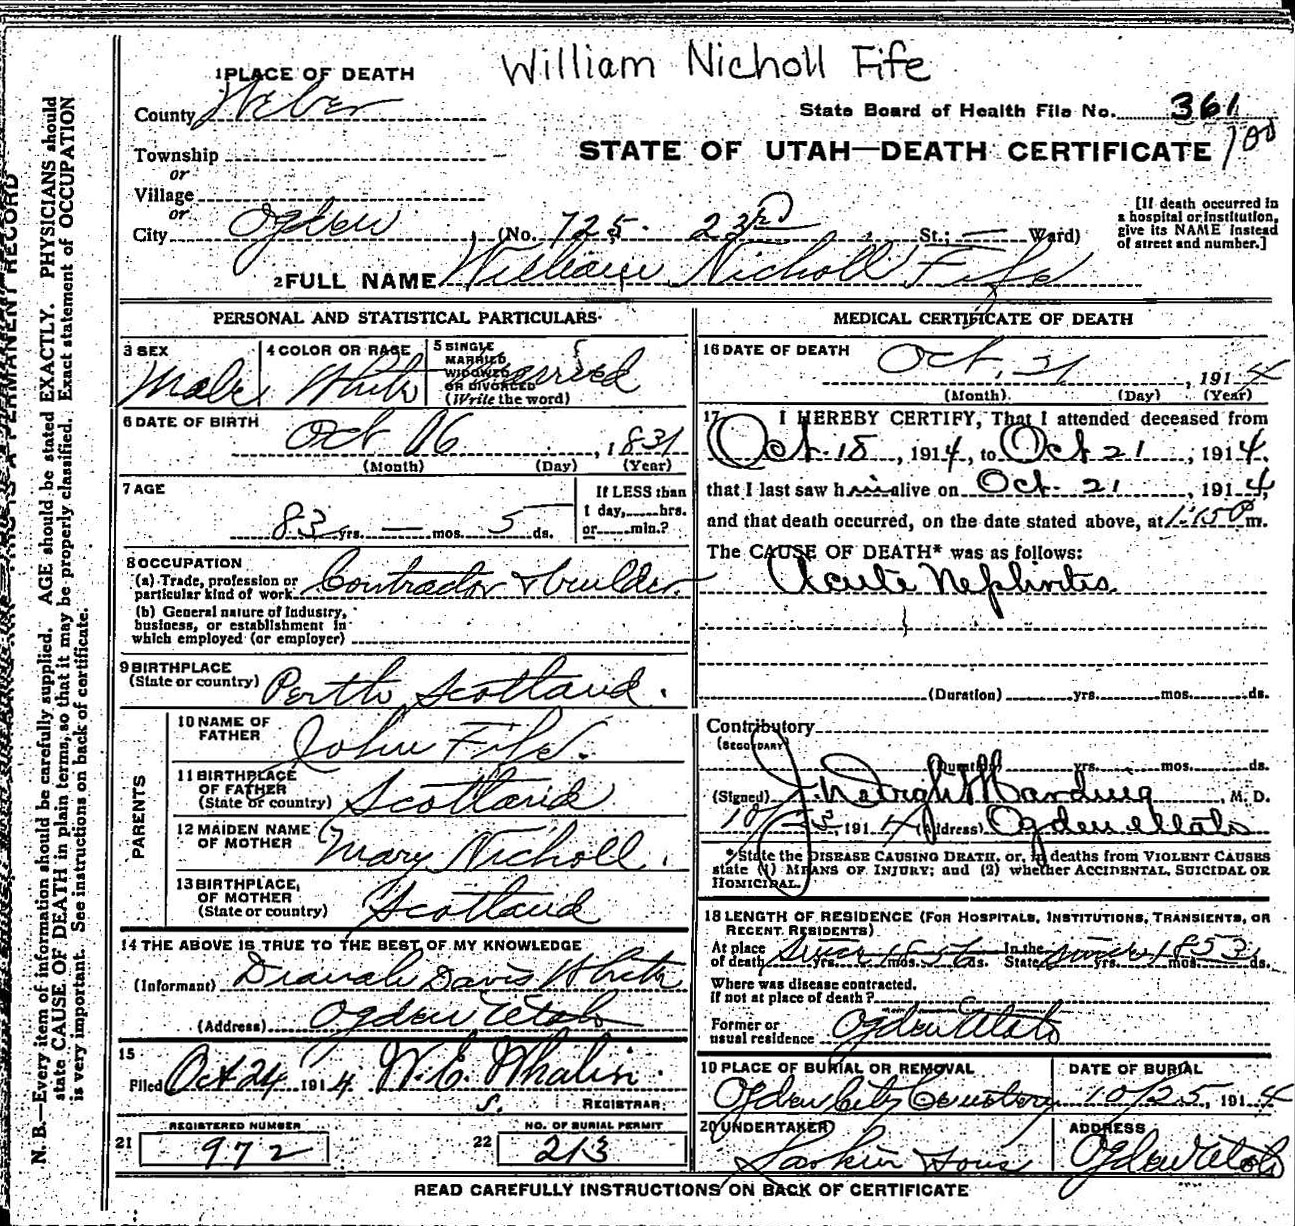 William Nicholl Fife
1 PLACE OF DEATH
County Weber
State Board of Health File No. 361
100
Township
STATE OF UTAH—DEATH CERTIFICATE
or
Village
or
City Ogden (No. 725. 23rd St.; — Ward)
[If death occurred in
a hospital or institution,
give its NAME instead
of street and number.]
2 FULL NAME William Nicholl Fife
N. B.—Every item of information should be carefully supplied. AGE should be stated EXACTLY. PHYSICIANS should
state CAUSE OF DEATH in plain terms, so that it may be properly classified. Exact statement of OCCUPATION
is very important. See instructions on back of certificate.
PERMANENT RECORD
PERSONAL AND STATISTICAL PARTICULARS
3 SEX
Male
4 COLOR OR RACE
White
5 SINGLE
MARRIED
WIDOWED
OR DIVORCED
(Write the word)
Married
6 DATE OF BIRTH
Oct 16, 1831
(Month) (Day) (Year)
7 AGE
83 yrs. — mos. 5 ds.
If LESS than
1 day, hrs.
or min.?
8 OCCUPATION
(a) Trade, profession or
particular kind of work Contractor & builder.
(b) General nature of industry,
business, or establishment in
which employed (or employer)
9 BIRTHPLACE
(State or country) Perth Scotland.
PARENTS
10 NAME OF
FATHER John Fife.
11 BIRTHPLACE
OF FATHER
(State or country) Scotland
12 MAIDEN NAME
OF MOTHER Mary Nicholl.
13 BIRTHPLACE
OF MOTHER
(State or country) Scotland
14 THE ABOVE IS TRUE TO THE BEST OF MY KNOWLEDGE
(Informant) Davis White
(Address) Ogden Utah
15
Filed Oct 24 1914 W. E. Whalin.
S. REGISTRAR.
21
REGISTERED NUMBER
972
22
NO. OF BURIAL PERMIT
213
MEDICAL CERTIFICATE OF DEATH
16 DATE OF DEATH
Oct, 21, 1914
(Month) (Day) (Year)
17 I HEREBY CERTIFY, That I attended deceased from
Oct. 18, 1914, to Oct 21, 1914,
that I last saw him alive on Oct. 21, 1914,
and that death occurred, on the date stated above, at 1:15 P m.
The CAUSE OF DEATH* was as follows:
Acute Nephritis
(Duration) yrs. mos. ds.
Contributory
(SECONDARY)
(Duration) yrs. mos. ds.
(Signed) Harding, M. D.
10/23, 1914 (Address) Ogden Utah
*State the DISEASE CAUSING DEATH, or, in deaths from VIOLENT CAUSES
state (1) MEANS OF INJURY; and (2) whether ACCIDENTAL, SUICIDAL OR
HOMICIDAL.
18 LENGTH OF RESIDENCE (FOR HOSPITALS, INSTITUTIONS, TRANSIENTS, OR
RECENT RESIDENTS)
At place
of death since yrs. mos. ds. In the
State since 1853 yrs. mos. ds.
Where was disease contracted.
if not at place of death?
Former or
usual residence Ogden Utah
19 PLACE OF BURIAL OR REMOVAL
Ogden City Cemetery
DATE OF BURIAL
10/25, 1914
20 UNDERTAKER
Larkin Sons
ADDRESS
Ogden Utah
READ CAREFULLY INSTRUCTIONS ON BACK OF CERTIFICATE